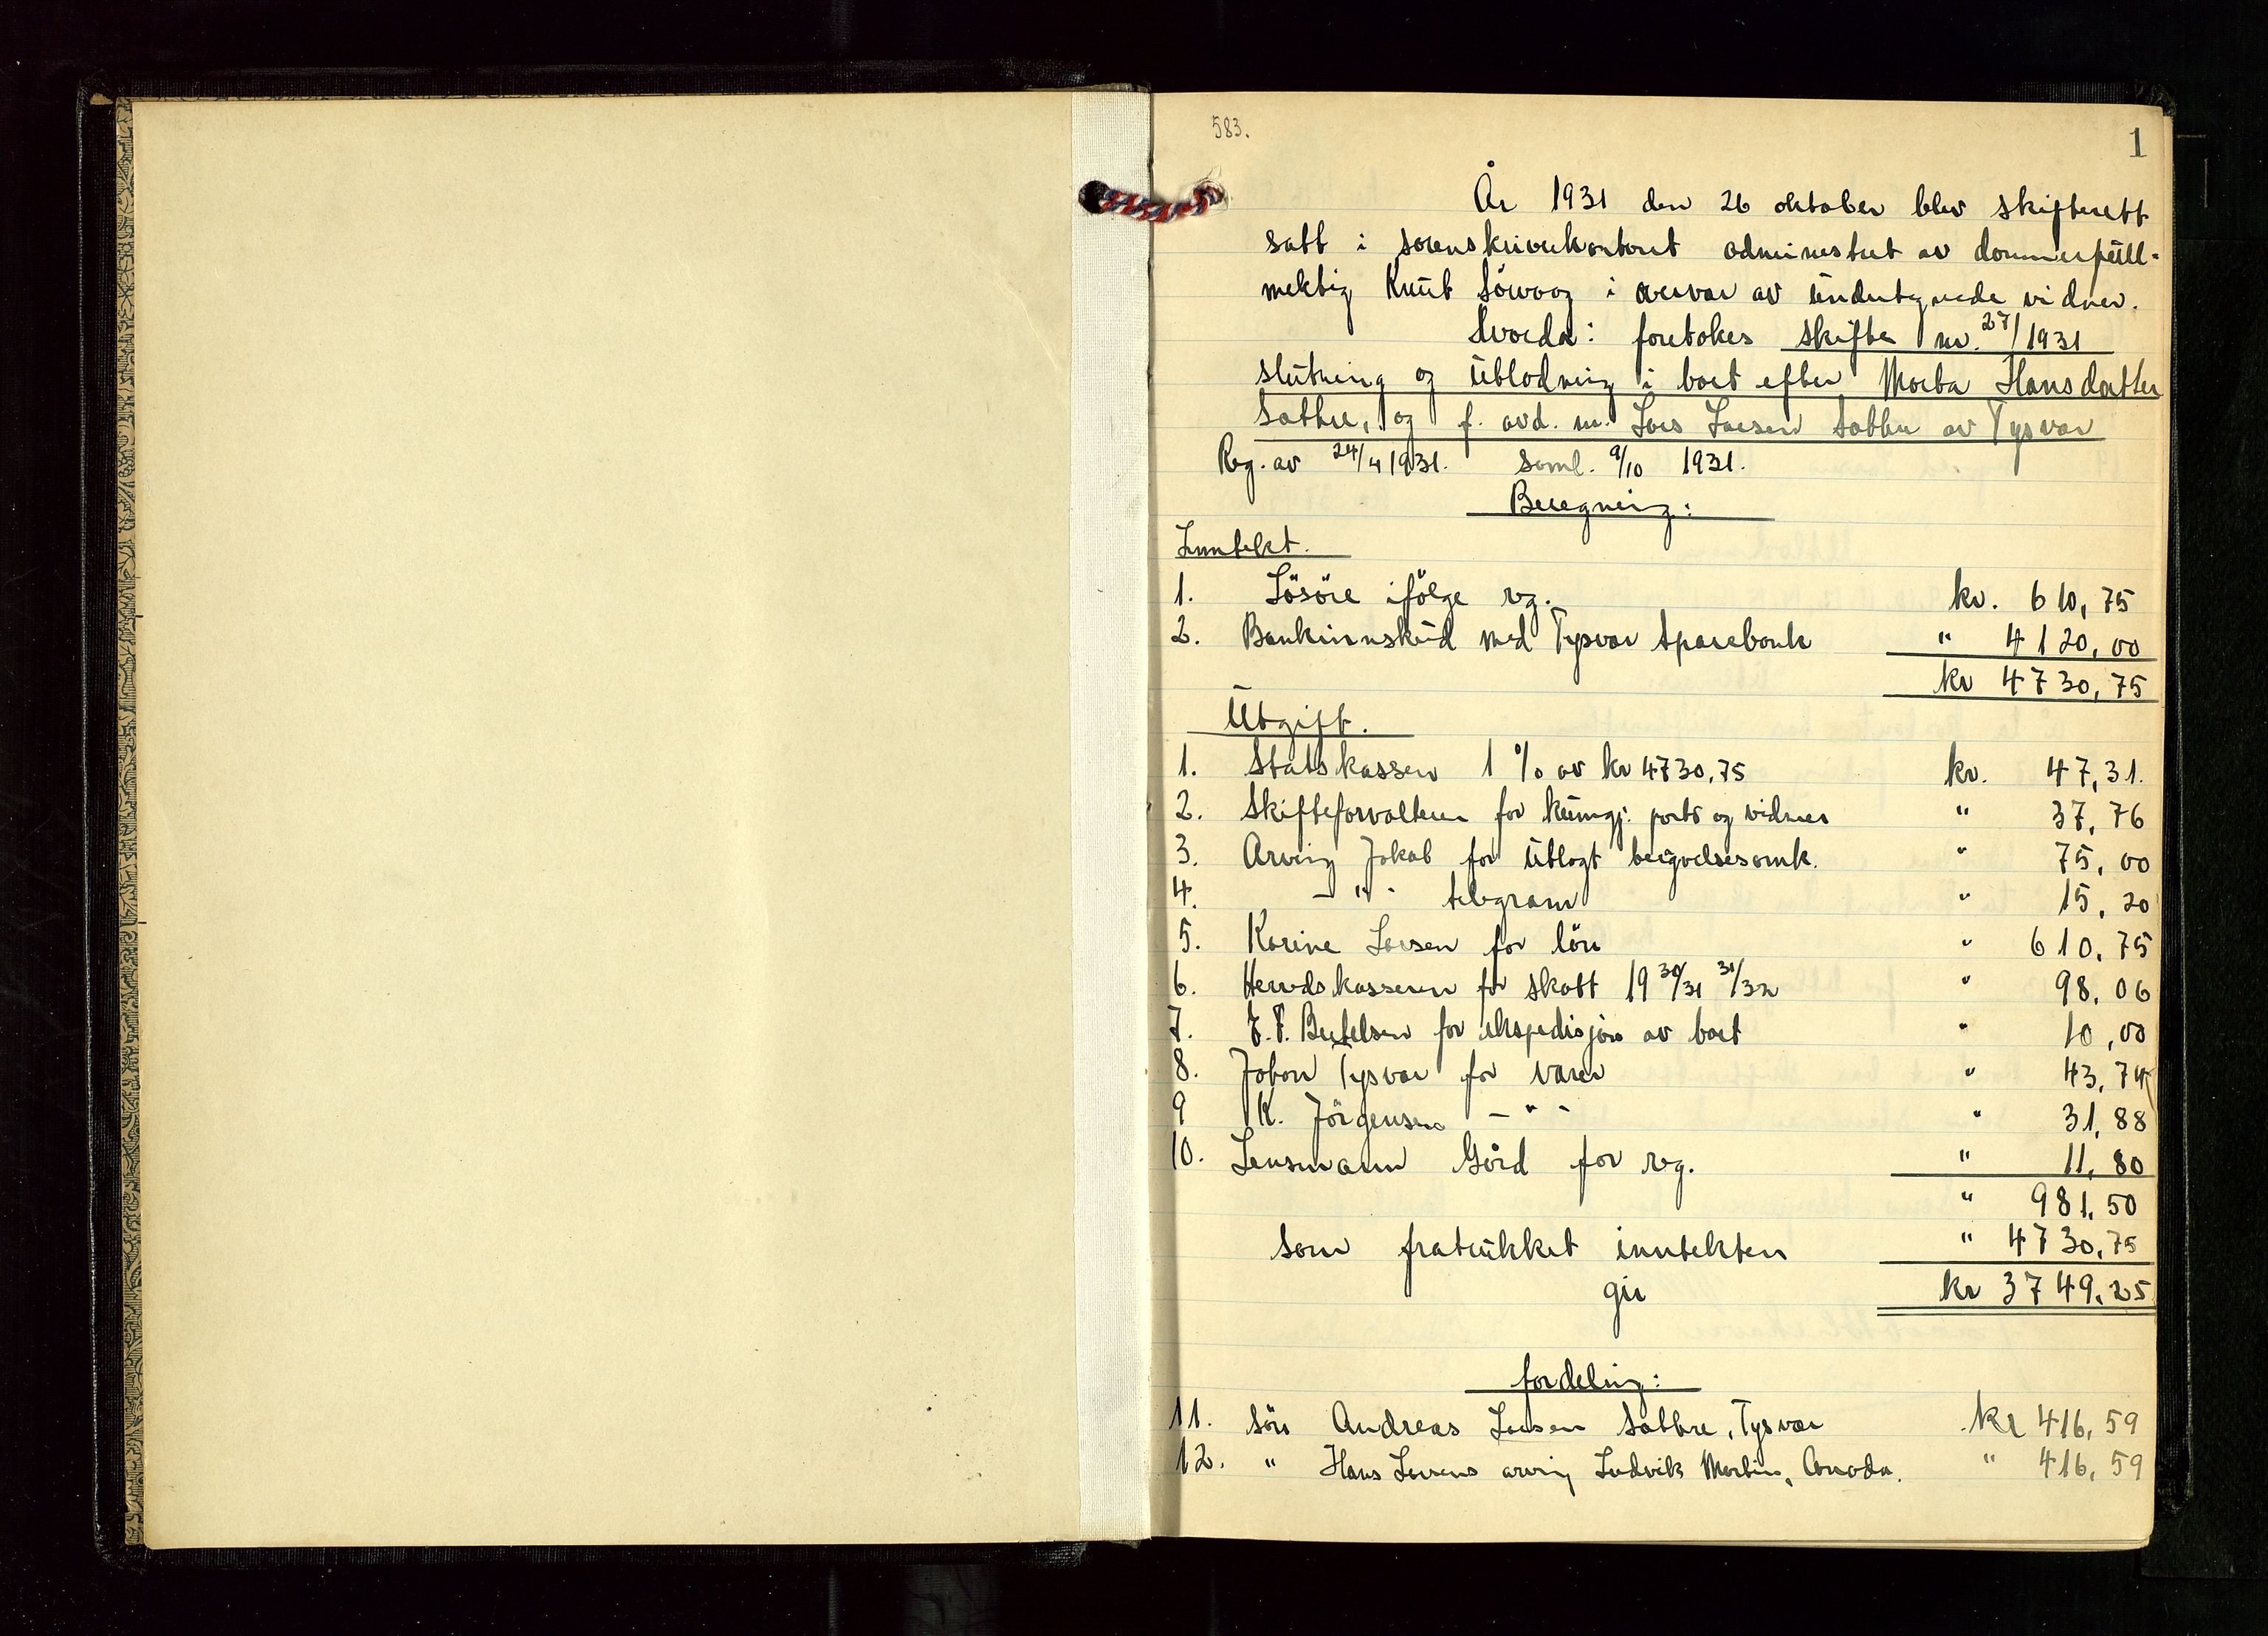 583.
1
År 1931 den 26 oktober blev skifterett
satt i sorenskriverkontoret administret av dommerfull-
mektig Knut Sörvåg i overvær av undertegnede vidner.
Hvorda: foretokes skifte nr. 27/1931
slutning og utlodning i boet efter Marta Hansdatter
Sattre, og f. avd. m. Lars Larsen Sattre av Tysvær
Reg. av 24/4 1931. Saml. 9/10 1931.
Beregning:
Inntekt.
1. Lösöre ifölge rg. kr. 610,75
2. Bankinnskud med Tysvær Sparebank " 4120,00
kr 4730,75
Utgift.
1. Statskassen 1 % av kr 4730,75 kr. 47,31.
2. Skifteforvalteren for kunngj. porto og vidner " 37,76
3. Arving Jakob for utlagt begravelsesomk. " 75,00
4. - " - telegram " 15,20
5. Karine Larsen for lön " 610,75
6. Herredskasseren for skatt 19 30/31 31/32 " 98,06
7. Bertelsen for ekspedisjon av boet " 10,00
8. Johan Tysvær for varer " 43,74
9 K. Jörgensen - " - " 31,88
10. Lensmann Gård for rg. " 11,80
" 981,50
som fratrukket inntekten " 4730,75
gir kr 3749,25
fordeling:
11. Sön Andreas Larsen Sattre, Tysvær kr 416,59
12. " Hans Larsens arving Ludvik Martin, Canada. " 416,59